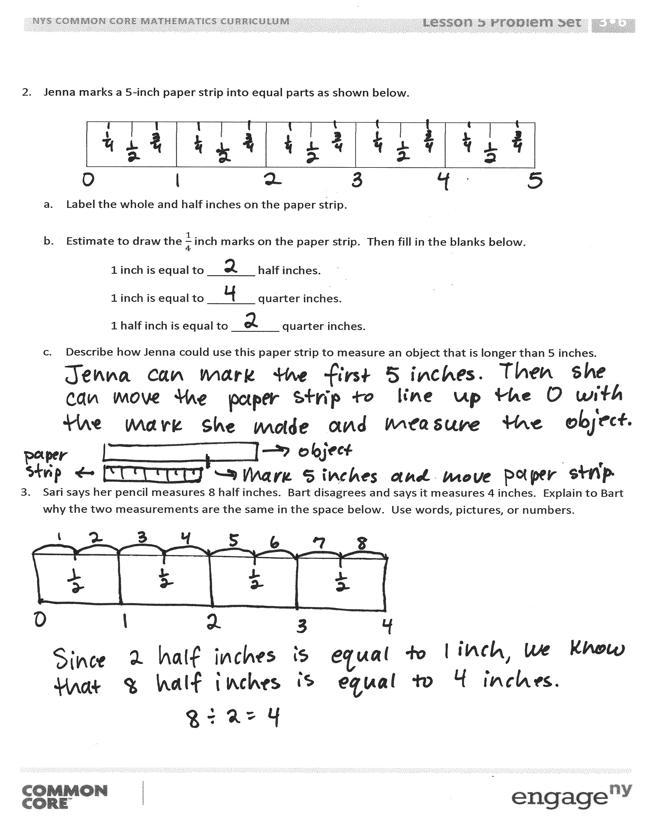 NYS COMMON CORE MATHEMATICS CURRICULUM Lesson 5 Problem Set 3•6
2. Jenna marks a 5-inch paper strip into equal parts as shown below.
1/4 1/2 3/4 1/4 1/2 3/4 1/4 1/2 3/4 1/4 1/2 3/4 1/4 1/2 3/4
0 1 2 3 4 5
a. Label the whole and half inches on the paper strip.
b. Estimate to draw the 1/4 inch marks on the paper strip. Then fill in the blanks below.
1 inch is equal to 2 half inches.
1 inch is equal to 4 quarter inches.
1 half inch is equal to 2 quarter inches.
c. Describe how Jenna could use this paper strip to measure an object that is longer than 5 inches.
Jenna can mark the first 5 inches. Then she
can move the paper strip to line up the 0 with
the mark she made and measure the object.
paper → object
strip ← → Mark 5 inches and move paper strip.
3. Sari says her pencil measures 8 half inches. Bart disagrees and says it measures 4 inches. Explain to Bart
why the two measurements are the same in the space below. Use words, pictures, or numbers.
1 2 3 4 5 6 7 8
1/2 1/2 1/2 1/2
0 1 2 3 4
Since 2 half inches is equal to 1 inch, we know
that 8 half inches is equal to 4 inches.
8 ÷ 2 = 4
COMMON
CORE™
engage ny